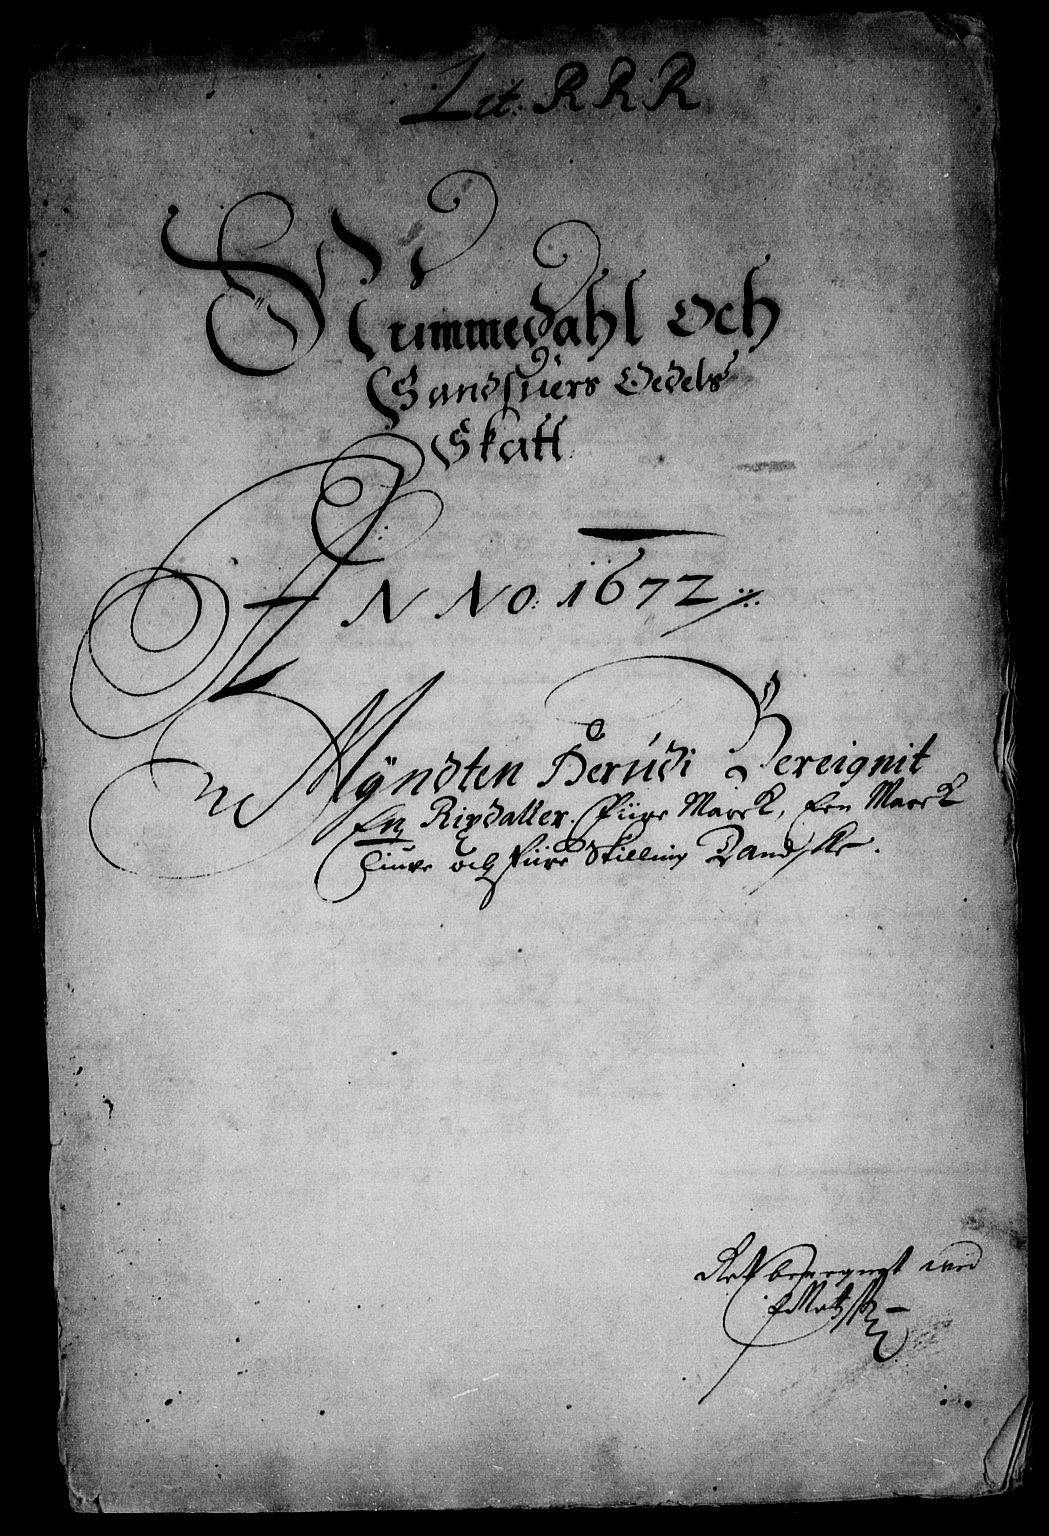 Lit. R R R
Nummedahl Och
Sandsuers Oedels
Skatt
ANNO: 1672
Myndten Herudi Bereignit
En Rixdaller fiire Marck, Een Marck
tiuve och fiire Skilling Dandske.
Ret beregnet med